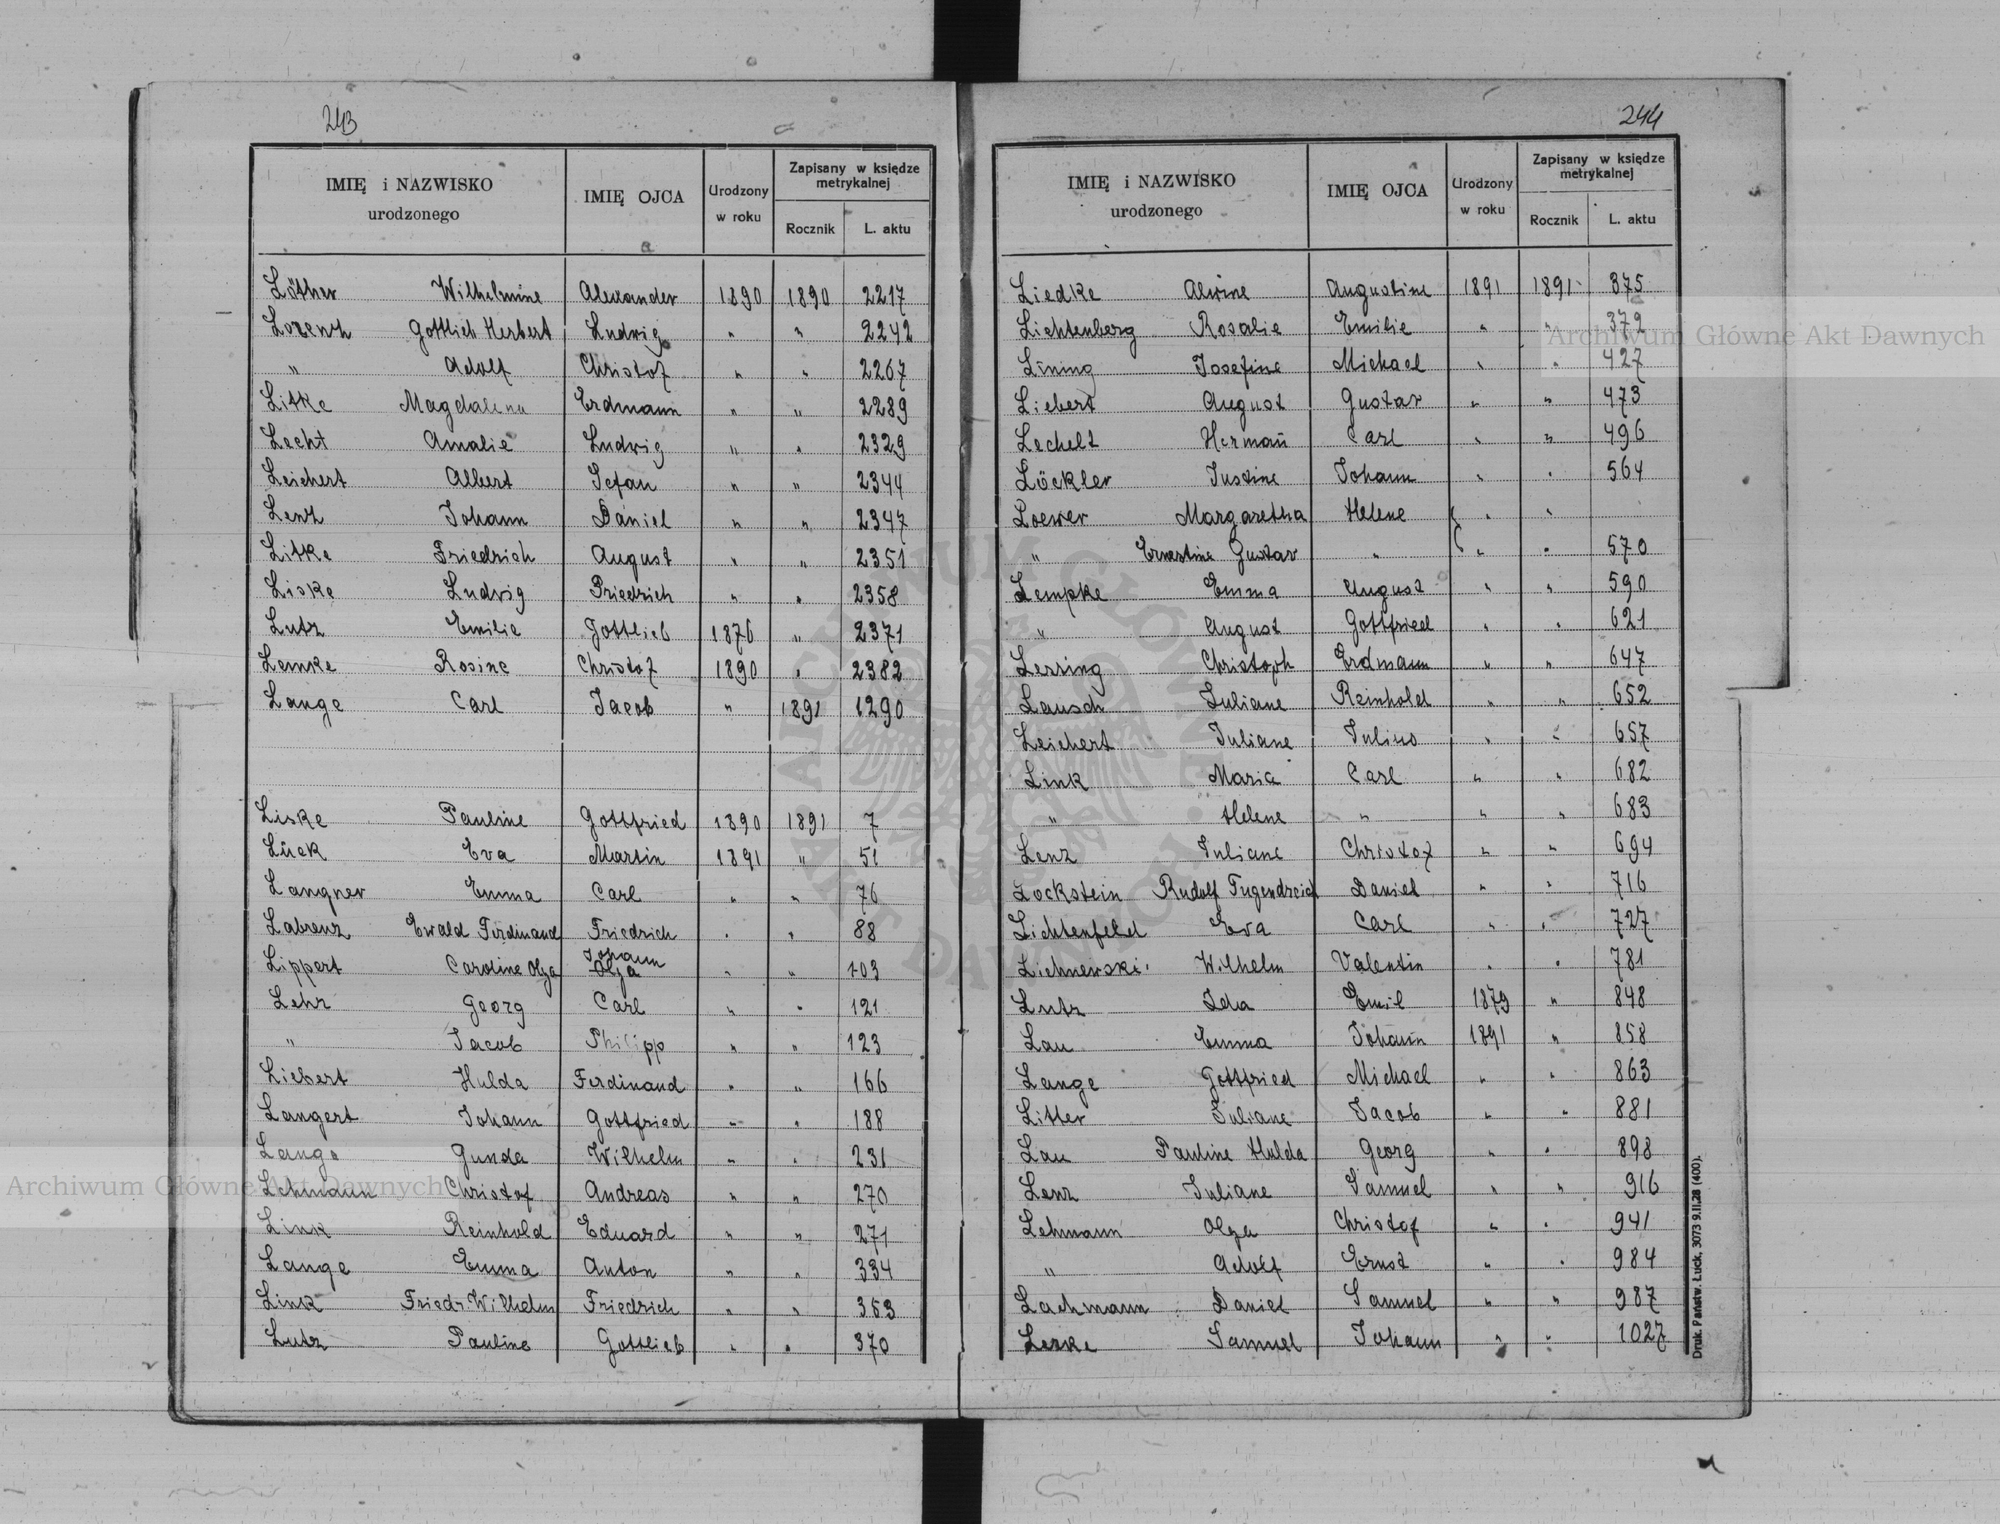 243
IMIĘ i NAZWISKO urodzonego IMIĘ OJCA Urodzony w roku Zapisany w księdze metrykalnej Rocznik L. aktu
Löther Wilhelmine Alexander 1890 1890 2217
Lorenz Gottlieb Herbert Ludwig " " 2242
" Adolf Christof " " 2267
Litke Magdalena Erdmann " " 2289
Lecht Amalie Ludwig " " 2329
Leichert Albert Stefan " " 2344
Lenz Johann Daniel " " 2347
Litke Friedrich August " " 2351
Liske Ludwig Friedrich " " 2358
Lutz Emilie Gottlieb 1876 " 2371
Lemke Rosine Christof 1890 " 2382
Lange Carl Jacob " 1891 1290
Liske Pauline Gottfried 1890 1891 7
Lück Eva Martin 1891 " 51
Langner Emma Carl " " 76
Labrenz Ewald Ferdinand Friedrich " " 88
Lippert Caroline Olga Johann Olga " " 103
Lehr Georg Carl " " 121
" Jacob Philipp " " 123
Liebert Hulda Ferdinand " " 166
Langert Johann Gottfried " " 188
Lange Gunda Wilhelm " " 231
Lehmann Christof Andreas " " 270
Link Reinhold Eduard " " 271
Lange Emma Anton " " 334
Link Friedr. Wilhelm Friedrich " " 353
Lutz Pauline Gottlieb " " 370
244
IMIĘ i NAZWISKO urodzonego IMIĘ OJCA Urodzony w roku Zapisany w księdze metrykalnej Rocznik L. aktu
Liedke Alwine Augustine 1891 1891 375
Lichtenberg Rosalie Emilie " " 379
Lining Josefine Michael " " 427
Liebert August Gustav " " 473
Lechelt Hermań Carl " " 496
Löckler Justine Johann " " 564
Loewer Margaretha Helene " "
" Ernestine Gustav " " " 570
Lempke Emma August " " 590
" August Gottfried " " 621
Lessing Christoph Erdmann " " 647
Lausch Juliane Reinhold " " 652
Leichert Juliane Julius " " 657
Link Maria Carl " " 682
" Helene " " " 683
Lenz Juliane Christof " " 694
Lockstein Rudolf Tugendreich Daniel " " 716
Lichtenfeld Eva Carl " " 727
Lichnewski Wilhelm Valentin " " 781
Lutz Ida Emil 1879 " 848
Lau Emma Johann 1891 " 858
Lange Gottfried Michael " " 863
Litter Juliane Jacob " " 881
Lau Pauline Hulda Georg " " 898
Lenz Juliane Samuel " " 916
Lehmann Olga Christof " " 941
" Adolf Ernst " " 984
Lachmann Daniel Samuel " " 987
Leske Samuel Johann " " 1027
Druk. Państw. Łuck, 3073 9.II.28 (400).
Archiwum Główne Akt Dawnych
Archiwum Główne Akt Dawnych
ARCHIWUM GŁÓWNE AKT DAWNYCH